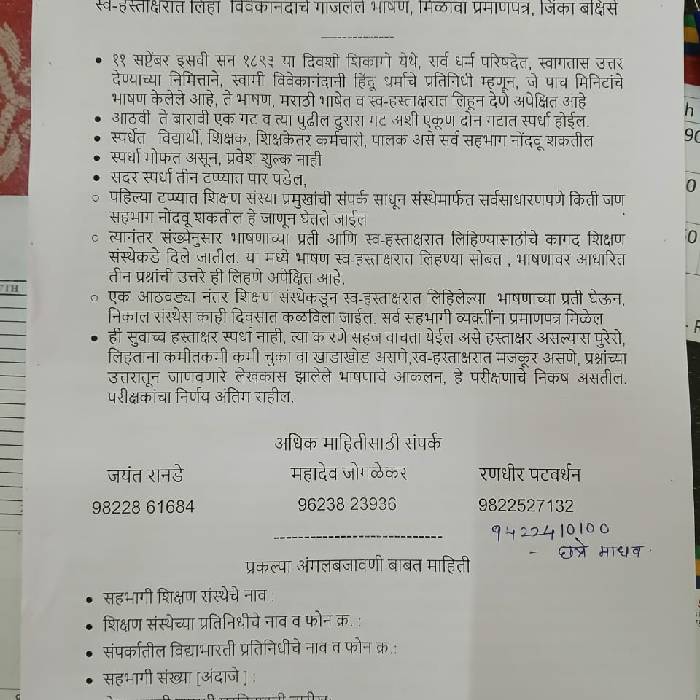 स्व-हस्ताक्षरात लिहा विवेकानंदांचे गाजलेले भाषण, मिळवा प्रमाणपत्र, जिंका बक्षिसे
• ११ सप्टेंबर इसवी सन १८९३ या दिवशी शिकागो येथे, सर्व धर्म परिषदेत, स्वागतास उत्तर
देण्याच्या निमित्ताने, स्वामी विवेकानंदानी हिंदू धर्माचे प्रतिनिधी म्हणून, जे पाच मिनिटांचे
भाषण केलेले आहे, ते भाषण, मराठी भाषेत व स्व-हस्ताक्षरात लिहून देणे अपेक्षित आहे
• आठवी ते बारावी एक गट व त्या पुढील दुसरा गट अशी एकूण दोन गटात स्पर्धा होईल.
• स्पर्धेत विद्यार्थी, शिक्षक, शिक्षकेतर कर्मचारी, पालक असे सर्व सहभाग नोंदवू शकतील
• स्पर्धा मोफत असून, प्रवेश शुल्क नाही
• सदर स्पर्धा तीन टप्प्यात पार पडेल,
○ पहिल्या टप्प्यात शिक्षण संस्था प्रमुखांची संपर्क साधून संस्थेमार्फत सर्वसाधारणपणे किती जण
सहभाग नोंदवू शकतील हे जाणून घेतले जाईल
○ त्यानंतर संख्येनुसार भाषणाच्या प्रती आणि स्व-हस्ताक्षरात लिहिण्यासाठीचे कागद शिक्षण
संस्थेकडे दिले जातील. या मध्ये भाषण स्व-हस्ताक्षरात लिहण्या सोबत , भाषणावर आधारित
तीन प्रश्नांची उत्तरे ही लिहणे अपेक्षित आहे.
○ एक आठवड्या नंतर शिक्षण संस्थेकडून स्व-हस्ताक्षरात लिहिलेल्या भाषणाच्या प्रती घेऊन,
निकाल संस्थेस काही दिवसात कळविला जाईल. सर्व सहभागी व्यक्तींना प्रमाणपत्र मिळेल
• ही सुवाच्य हस्ताक्षर स्पर्धा नाही, त्या कारणे सहज वाचता येईल असे हस्ताक्षर असल्यास पुरेसे,
लिहिताना कमीतकमी कमी चुका वा खाडाखोड असणे,स्व-हस्ताक्षरात मजकूर असणे, प्रश्नांच्या
उत्तरातून जाणवणारे लेखकास झालेले भाषणाचे आकलन, हे परीक्षणाचे निकष असतील.
परीक्षकांचा निर्णय अंतिम राहील.
अधिक माहितीसाठी संपर्क
जयंत रानडे महादेव जोगळेकर रणधीर पटवर्धन
98228 61684 96238 23936 9822527132
9422410100
- छत्रे माधव.
प्रकल्पा अंगलबजावणी बाबत माहिती
• सहभागी शिक्षण संस्थेचे नाव :
• शिक्षण संस्थेच्या प्रतिनिधीचे नाव व फोन क्र. :
• संपर्कातील विद्याभारती प्रतिनिधीचे नाव व फोन क्र.:
• सहभागी संख्या [अंदाजे] :